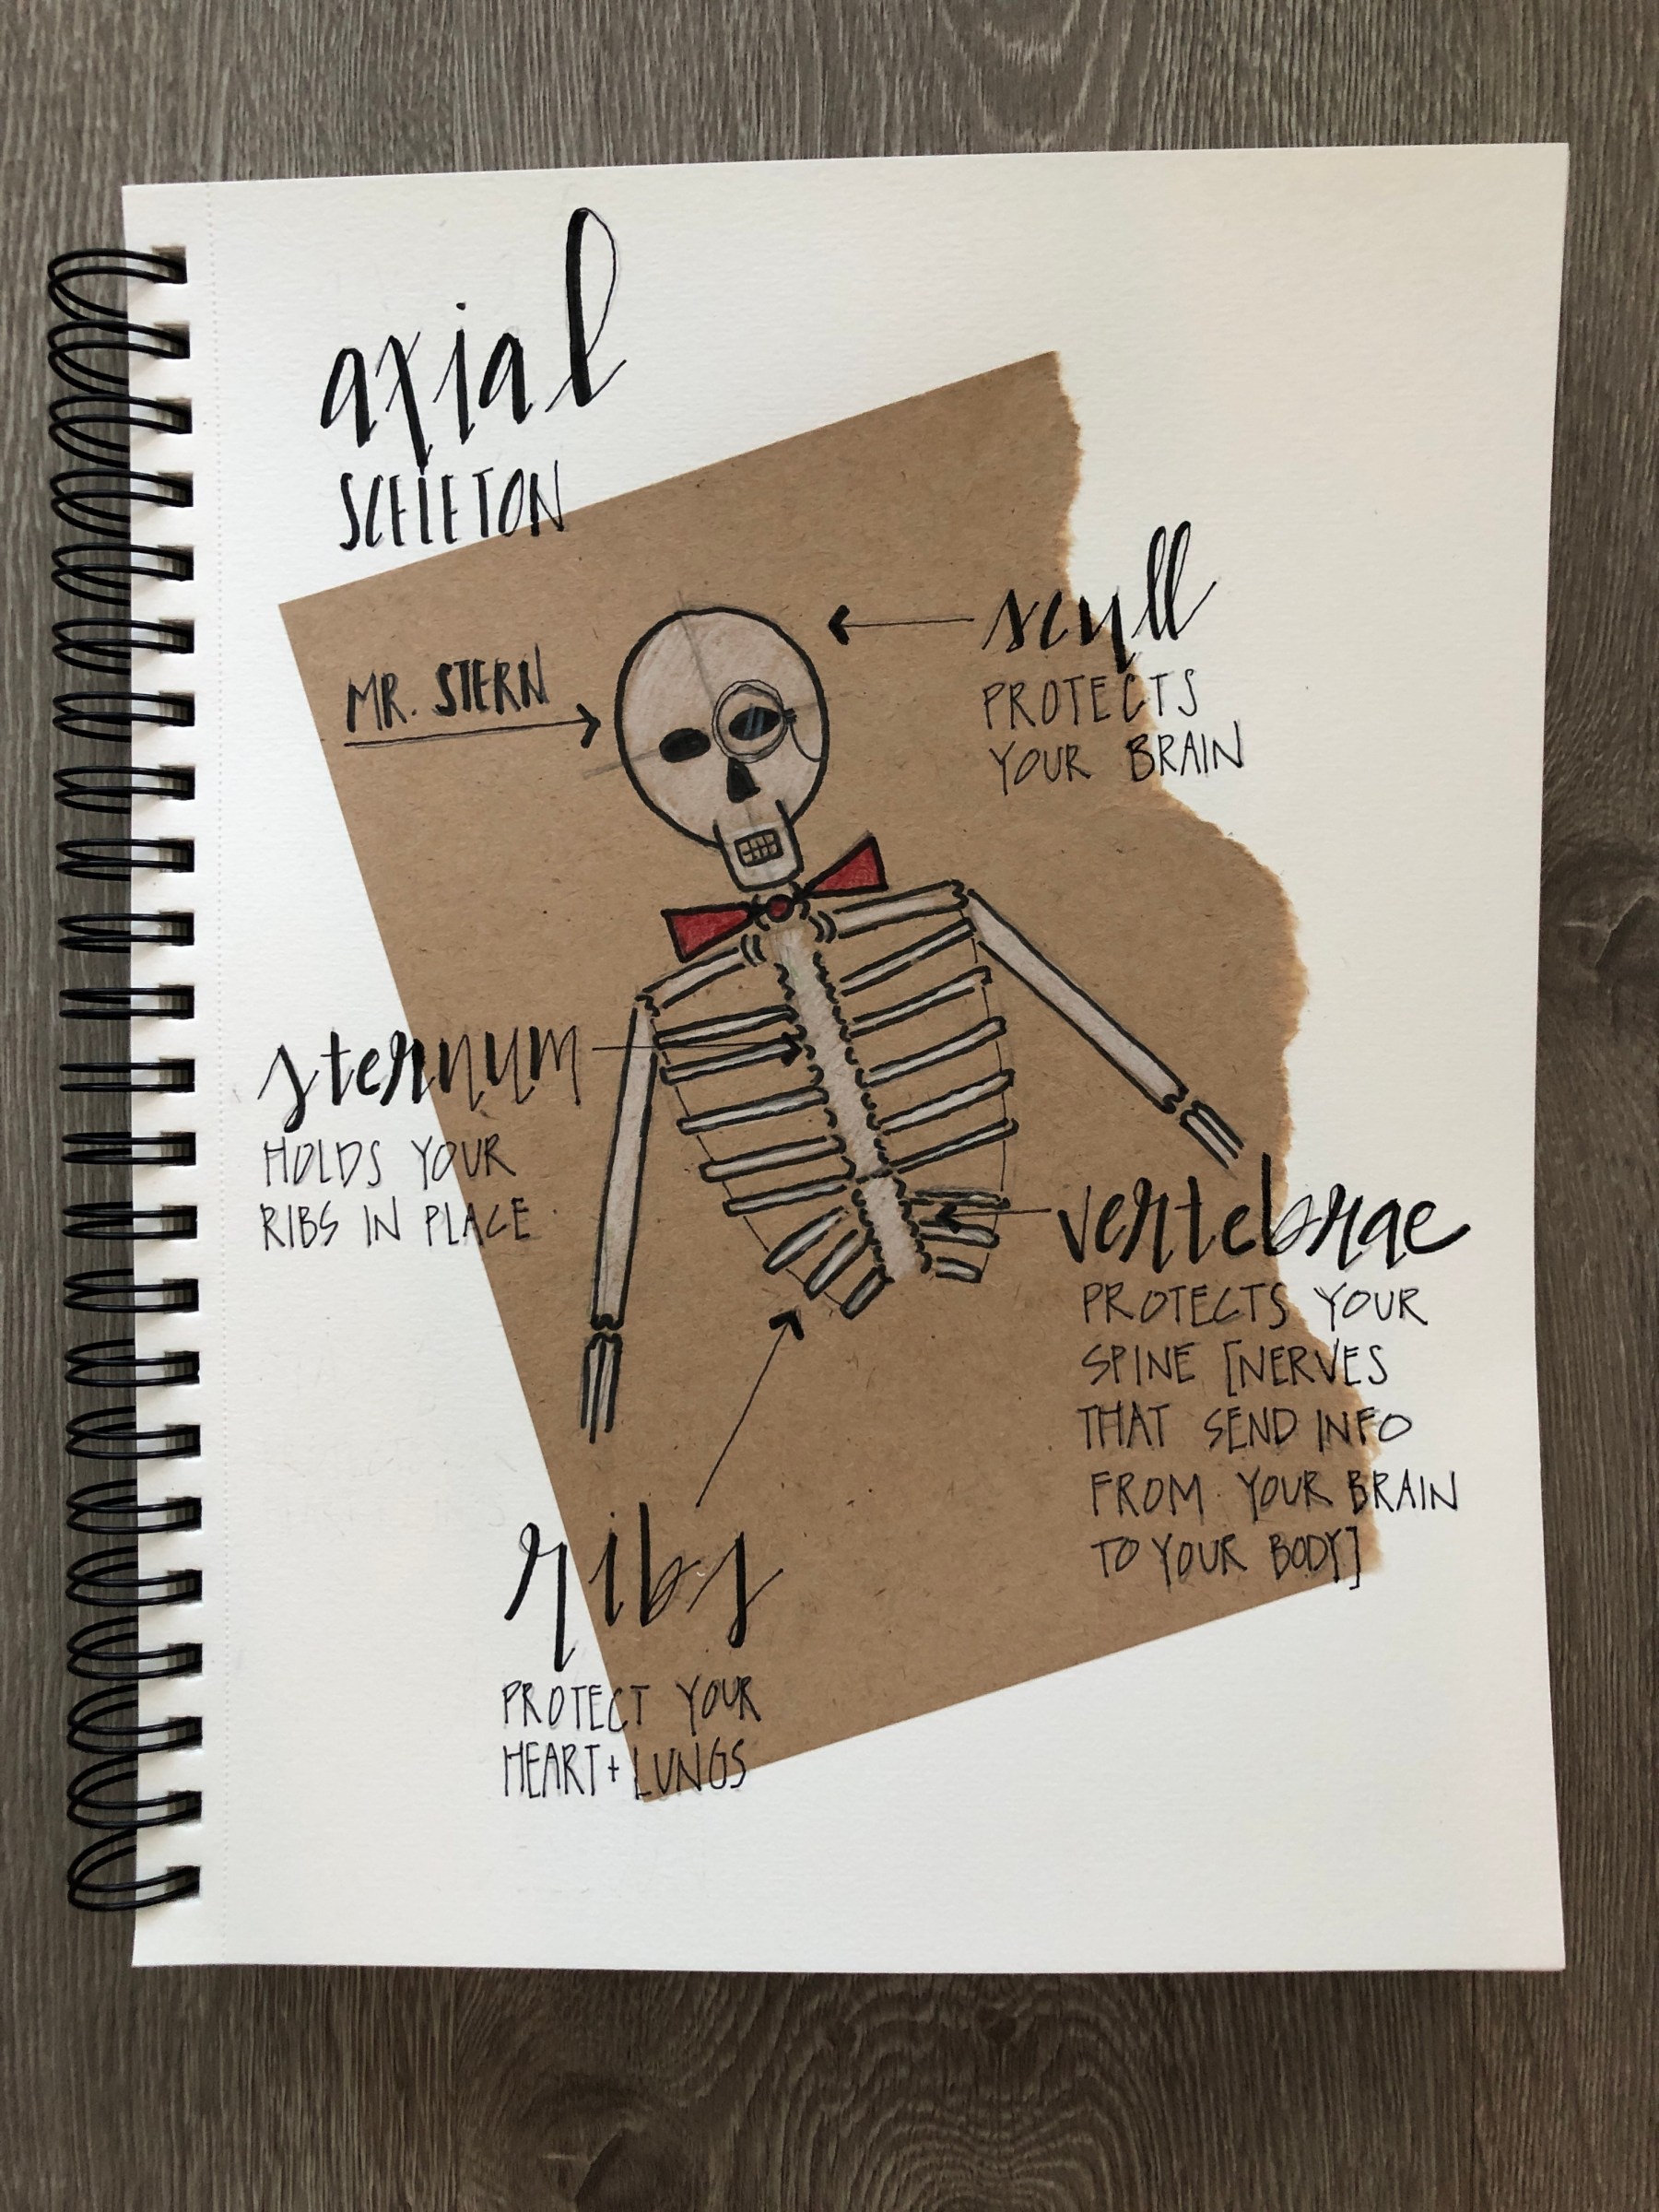 axial
SCELETON
scull
PROTECTS
YOUR BRAIN
MR. STERN
sternum
HOLDS YOUR
RIBS IN PLACE
vertebrae
PROTECTS YOUR
SPINE [NERVES
THAT SEND INFO
FROM YOUR BRAIN
TO YOUR BODY]
ribs
PROTECT YOUR
HEART + LUNGS